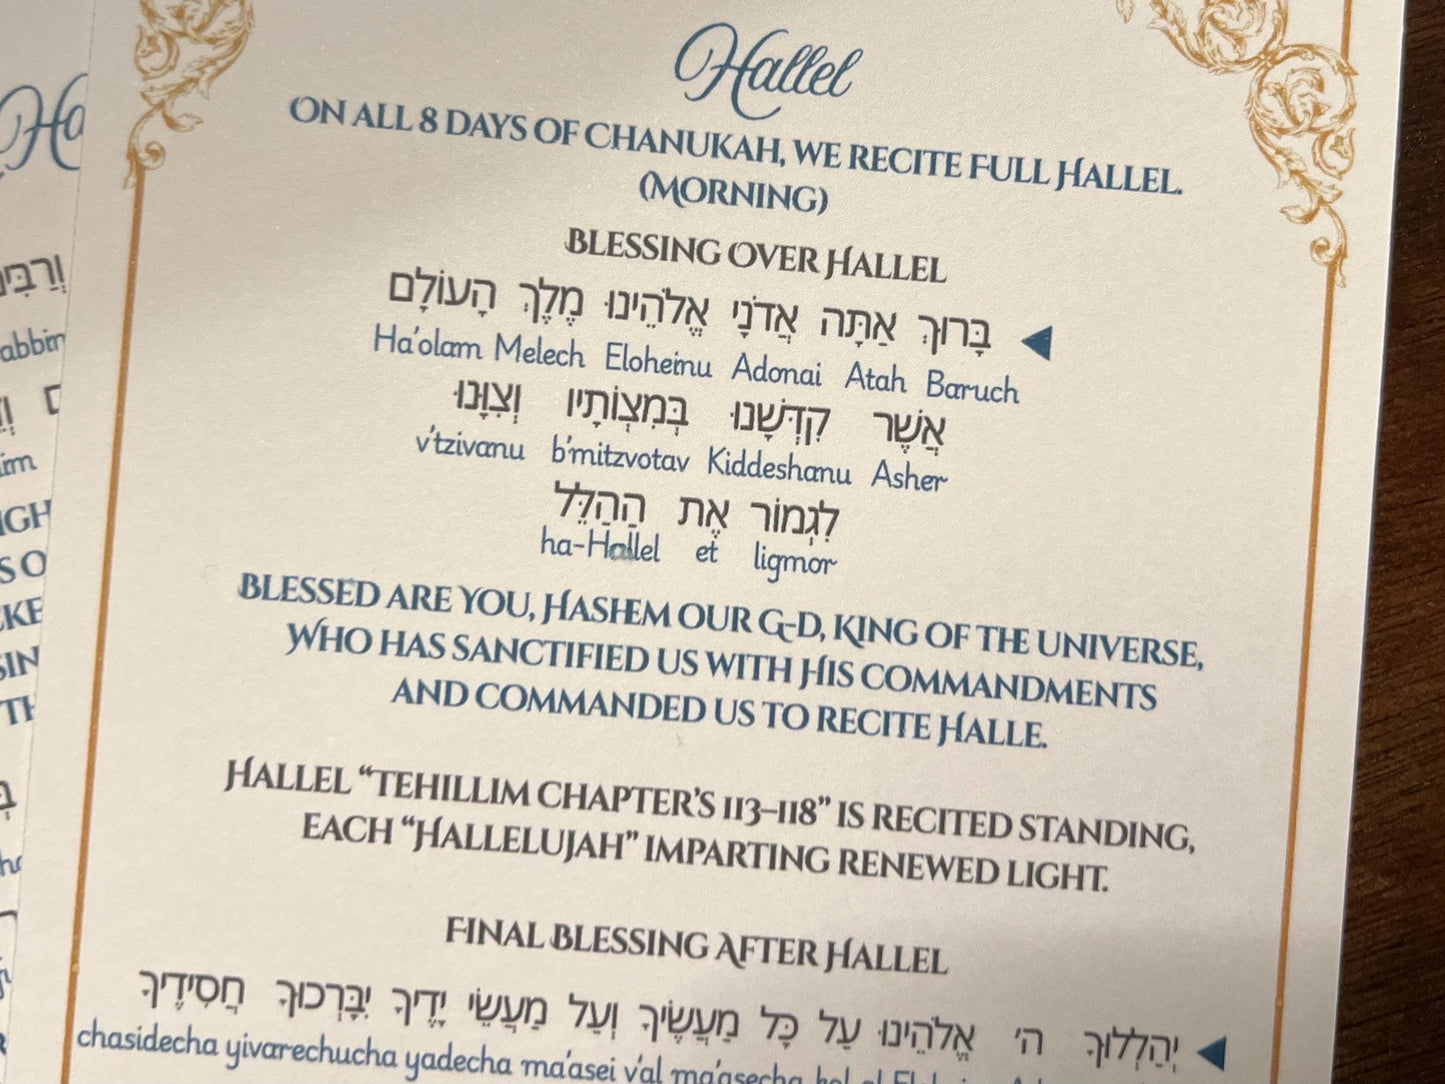 Hallel
ON ALL 8 DAYS OF CHANUKAH, WE RECITE FULL HALLEL.
(MORNING)
BLESSING OVER HALLEL
בָּרוּךְ אַתָּה אֲדֹנָי אֱלֹהֵינוּ מֶלֶךְ הָעוֹלָם
Ha'olam Melech Eloheinu Adonai Atah Baruch
אֲשֶׁר קִדְּשָׁנוּ בְּמִצְוֹתָיו וְצִוָּנוּ
v'tzivanu b'mitzvotav Kiddeshanu Asher
לִגְמוֹר אֶת הַהַלֵּל
ha-Hallel et ligmor
BLESSED ARE YOU, HASHEM OUR G-D, KING OF THE UNIVERSE,
WHO HAS SANCTIFIED US WITH HIS COMMANDMENTS
AND COMMANDED US TO RECITE HALLE.
HALLEL “TEHILLIM CHAPTER'S 113–118” IS RECITED STANDING,
EACH “HALLELUJAH” IMPARTING RENEWED LIGHT.
FINAL BLESSING AFTER HALLEL
יְהַלְלוּךָ ה' אֱלֹהֵינוּ עַל כָּל מַעֲשֶׂיךָ וְעַל מַעֲשֵׂי יָדֶיךָ יִבָּרְכוּךָ חֲסִידֶיךָ
chasidecha yivarechucha yadecha ma'asei v'al ma'asecha kol al